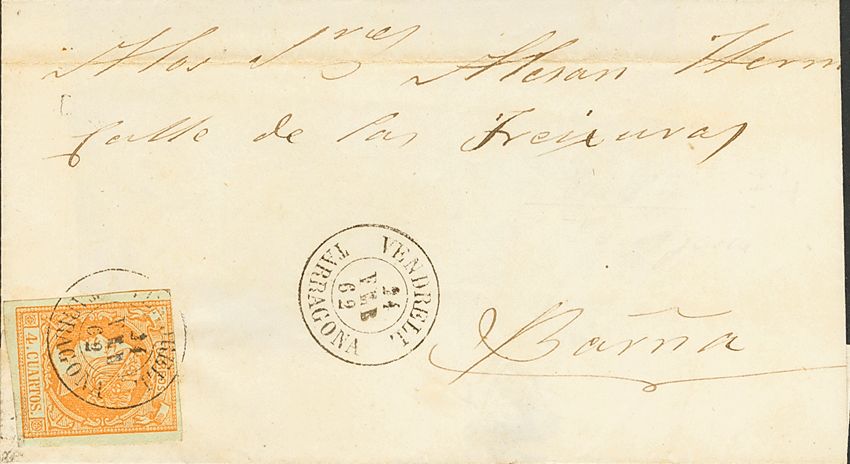 A los Sres Alesan Herm
Calle de las Freixuras
VENDRELL
24
FEB
62
TARRAGONA
Barña
4 CUARTOS.
TARRAGONA